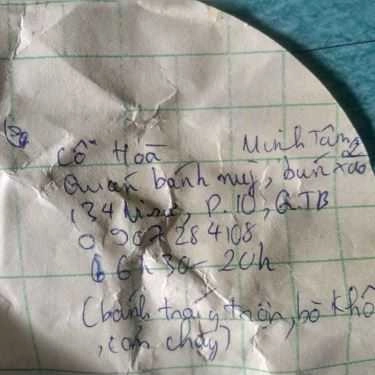 Cô Hoà Minh Tâm 2
Quán bánh mỳ, bún xào
134 P.10, Q.TB
0 907 284108
6h30 - 20h
(bánh tráng trộn, bò khô
, cơm cháy)